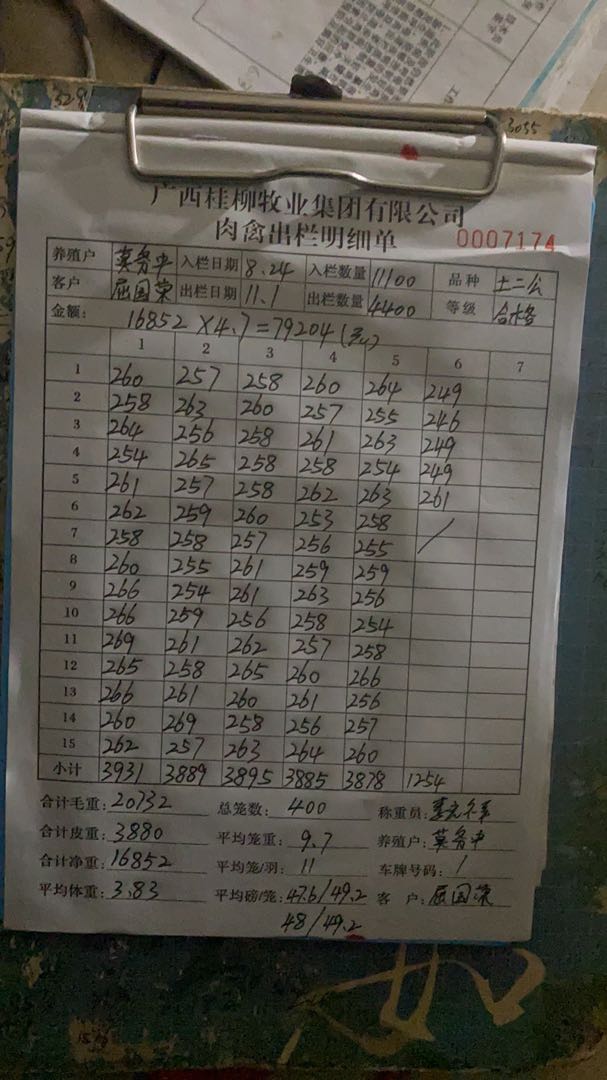 3055
广西桂柳牧业集团有限公司
肉禽出栏明细单 0007174
养殖户 莫务中 入栏日期 8.24 入栏数量 11100 品种 土二公
客户 屈国荣 出栏日期 11.1 出栏数量 4400 等级 合格
金额: 16852×4.7=79204
1 2 3 4 5 6 7
1 260 257 258 260 264 249
2 258 263 260 257 255 246
3 264 256 258 261 263 249
4 254 265 258 258 254 249
5 261 257 258 262 263 261
6 262 259 260 253 258 /
7 258 258 257 256 255
8 260 255 261 259 259
9 266 254 261 263 256
10 266 259 256 258 254
11 269 261 262 257 258
12 265 258 265 260 266
13 266 261 260 261 256
14 260 269 258 256 257
15 262 257 263 264 260
小计 3931 3889 3895 3885 3878 1254
合计毛重: 20732 总笼数: 400 称重员:
合计皮重: 3880 平均笼重: 9.7 养殖户: 莫务中
合计净重: 16852 平均笼/羽: 11 车牌号码: /
平均体重: 3.83 平均磅/笼: 47.6/49.2 客 户: 屈国荣
48/49.2